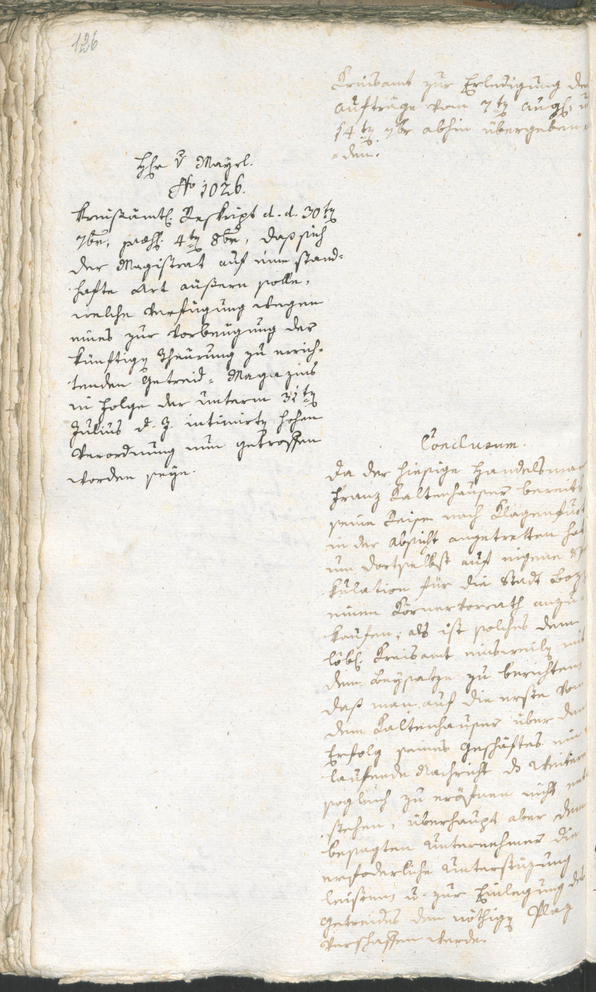 126
Kreisamt zur Erledigung der
Aufträge vom 7ten Augst u
14ten 7br abhin übergeben
den.
Hr v Mayrl.
No 1026.
Kreisämtl. Reskript d. d. 30ten
7br, præs. 4ten 8br, daß sich
der Magistrat auf eine stand-
hafte Art äußern solle,
welche Verfügung wegen
eines zur Vorbeugung der
künftigen Theürung zu errich-
tenden Getreid-Magazins
in Folge der unterm 31ten
Julius d. J. intimirten hohen
Verordnung nun getroffen
worden seye.
Conclusum.
Da der hiesige Handelsman
Franz Kaltenhauser bereits
seine Reise nach Klagenfurt
in der Absicht angetretten hat
um dortselbst auf eigene Spe
kulation für die Stadt Boz
einen Körnervorrath anzu-
kaufen; als ist solches dem
löbl. Kreisamt einsweils mit
dem Beysatze zu berichten
daß man auf die erste von
dem Kaltenhauser über den
Erfolg seines Geschäftes ein
laufende Nachricht das Weitere
sogleich zu eröfnen nicht ent
stehen, überhaupt aber dem
besagten Unternehmer die
erfoderliche Unterstüzung
leisten, u. zur Einlegung des
Getreides den nöthigen Plaz
verschaffen werde.